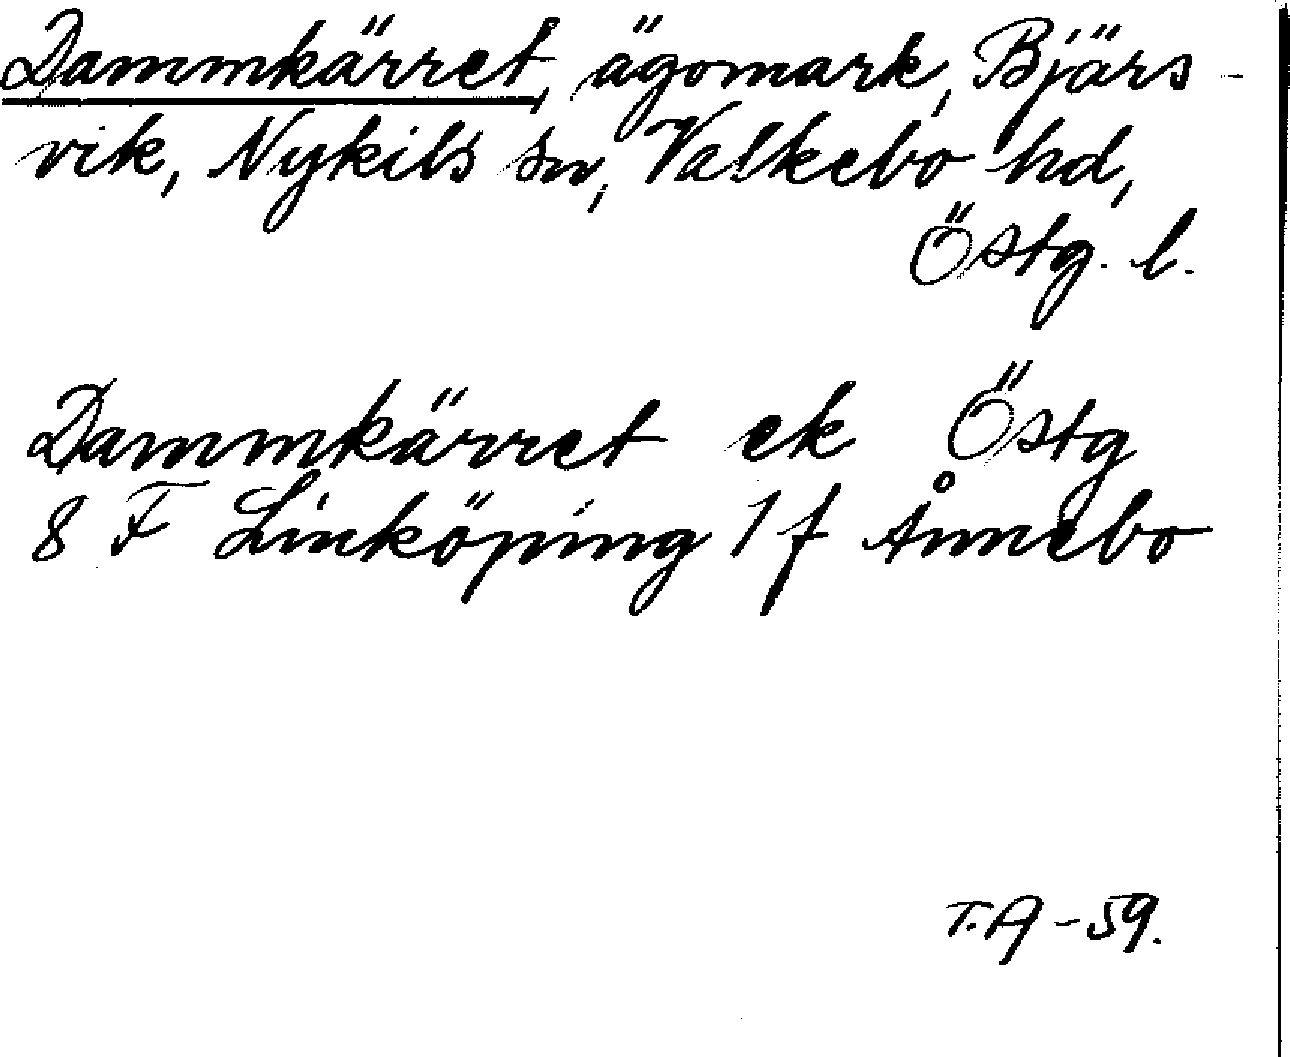 Dammkärret, ägomark, Bjärs-
vik, Nykils sn, Valkebo hd,
Östg. l.
Dammkärret ek Östg
8 F Linköping 1 f Ånnebo
T.A -59.